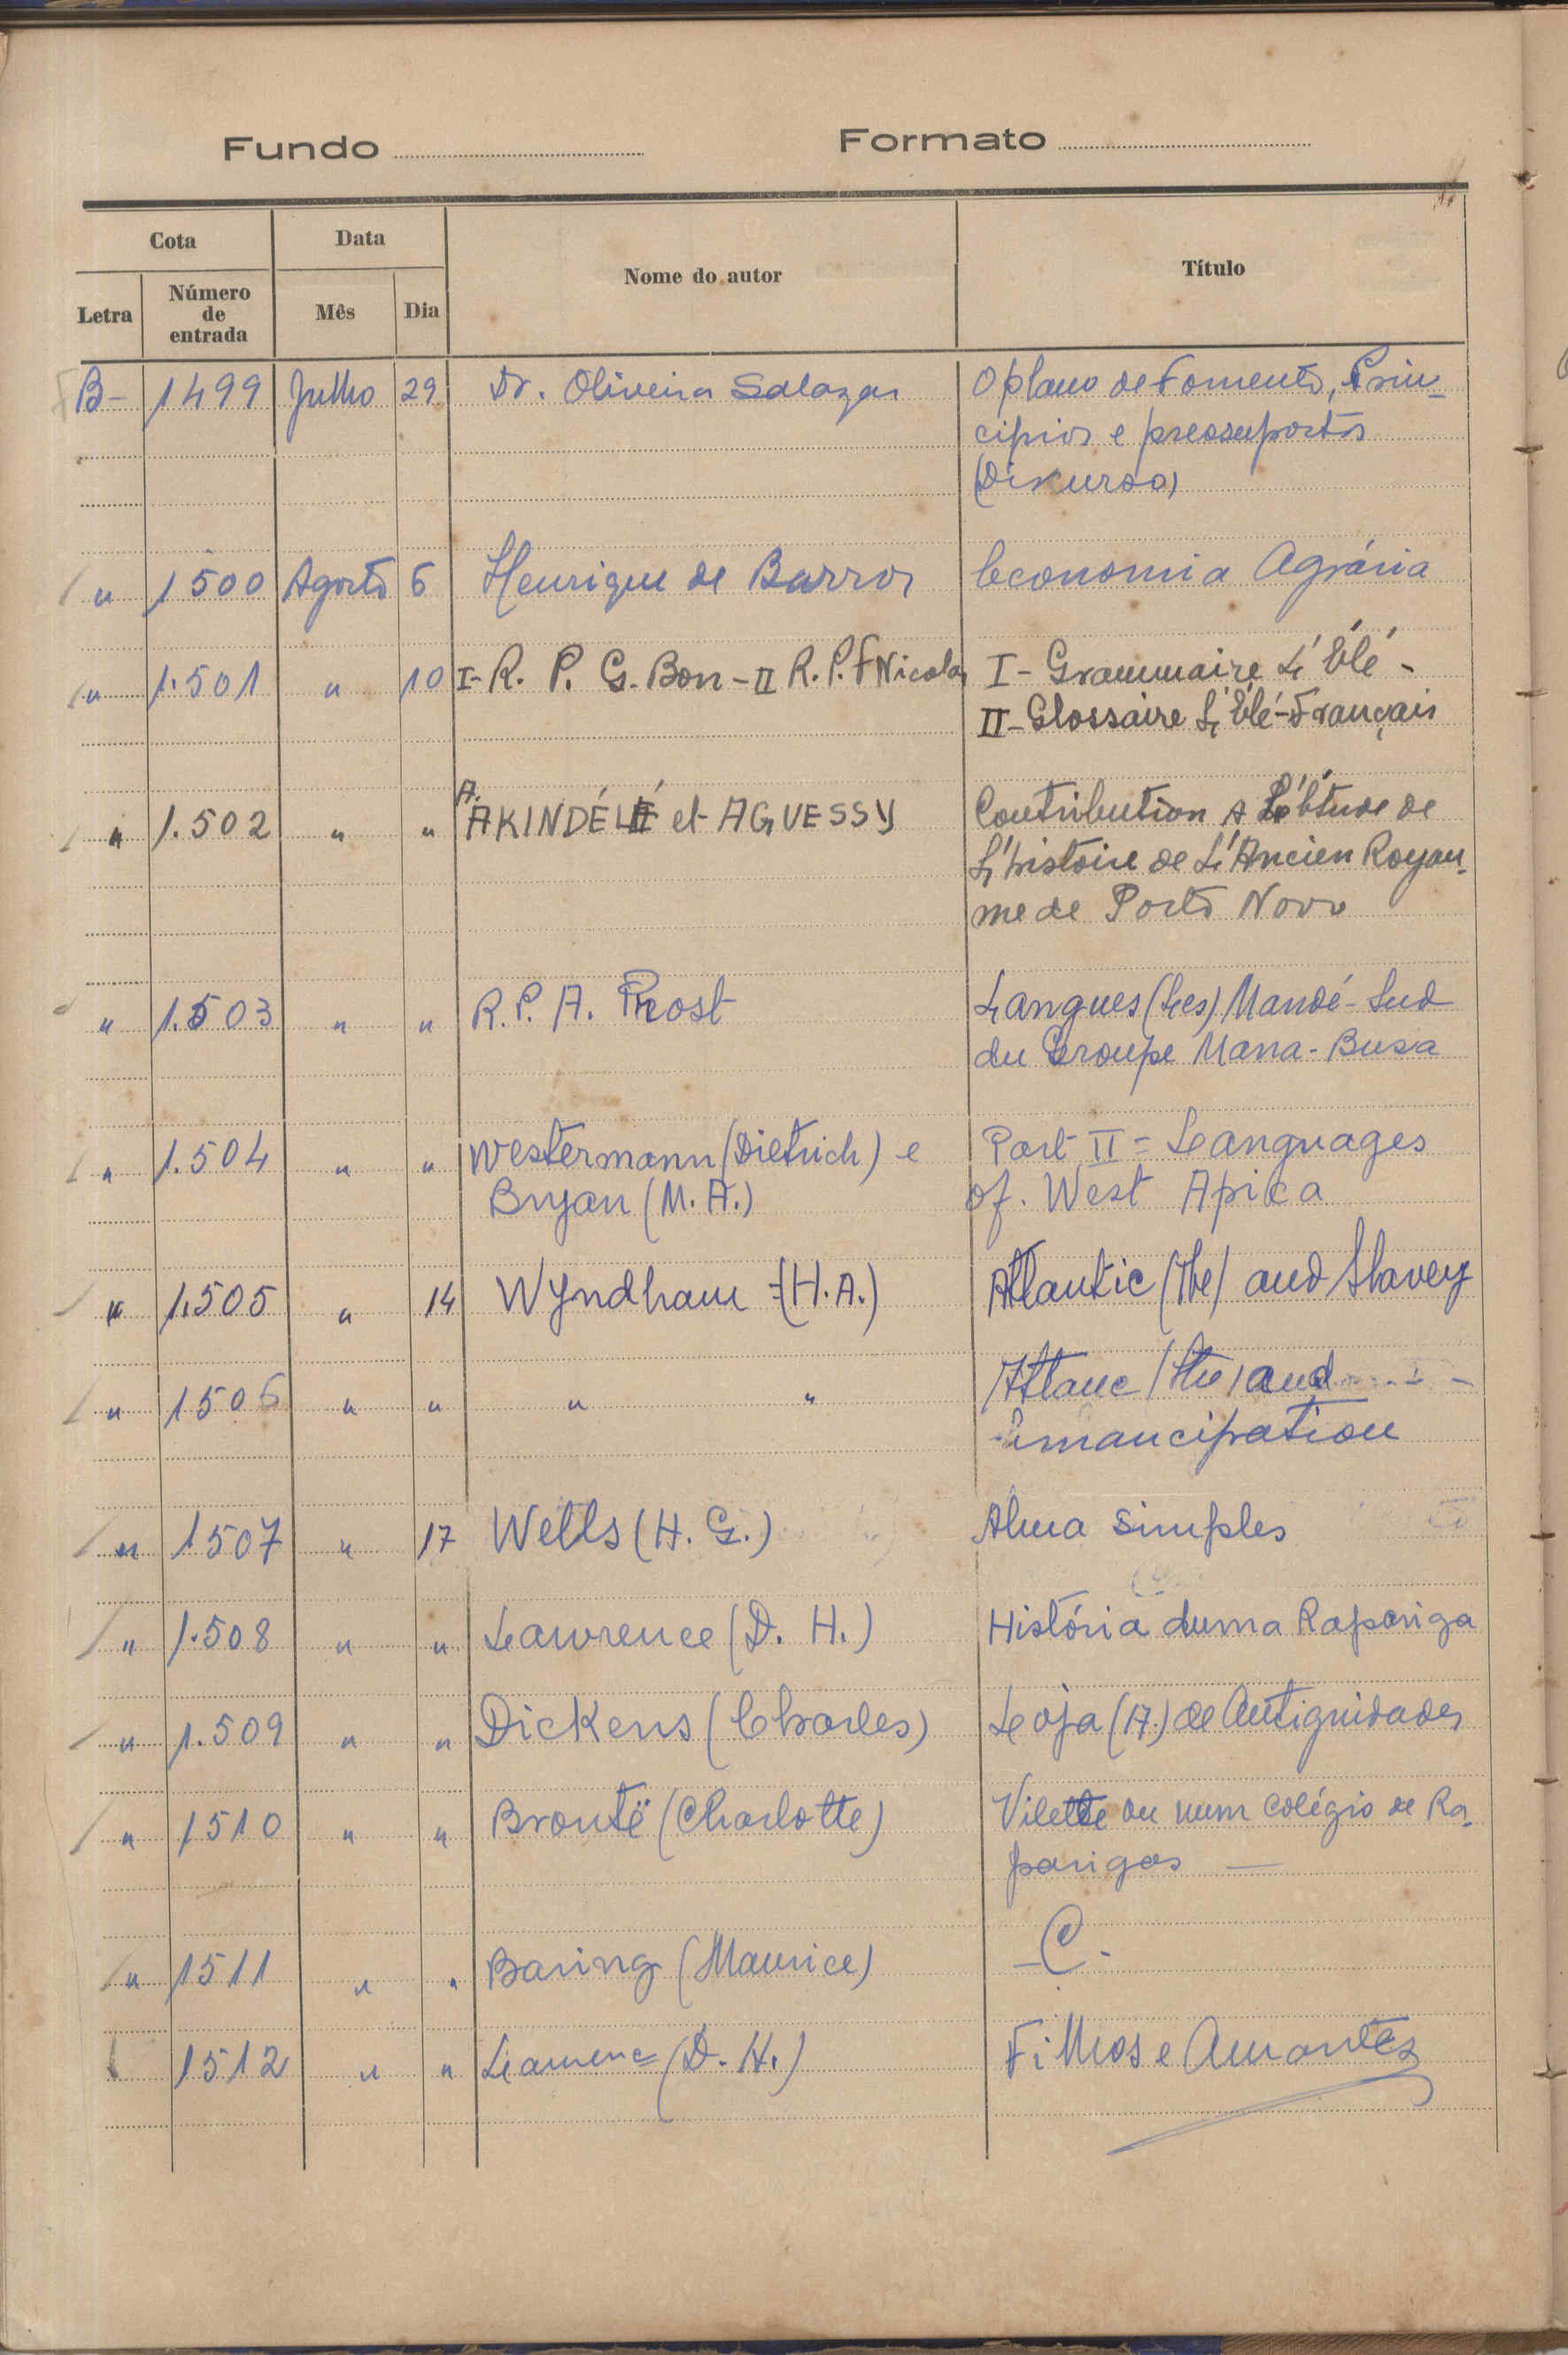 Fundo Formato
Cota Data Nome do autor Título
Letra Número de entrada Mês Dia
B- 1499 Julho 29 Dr. Oliveira Salazar O plano de Fomento, Prin-
cipios e pressupostos
(Discurso)
" 1500 Agosto 6 Henrique de Barros Economia Agrária
" 1.501 " 10 I- R. P. G. Bon - II R. P. F Nicolas I - Grammaire L'Élé -
II - Glossaire L'Élé-Français
" 1.502 " " A. AKINDÉLÉ et AGUESSY Contribution A L'Étude de
L'histoire de L'Ancien Royau-
me de Porto Novo
" 1.503 " " R. P. A. Prost Langues (Les) Mandé-Sud
du Groupe Mana-Busa
" 1.504 " " Westermann (Dietrich) e Part II = Languages
Bryan (M. A.) of. West Africa
" 1.505 " 14 Wyndham (H. A.) Atlantic (the) and Slavery
" 1506 " " " " Atlanc (the) and
Emancipation
" 1507 " 17 Wells (H. G.) Alma Simples
" 1.508 " " Lawrence (D. H.) História duma Rapariga
" 1.509 " " Dickens (Charles) Loja (A.) de Antiguidades
" 1510 " " Brontë (Charlotte) Vilette ou num Colégio de Ra-
parigas —
" 1511 " " Baring (Maurice) - C. -
1512 " " Lawrence (D. H.) Filhos e Amantes